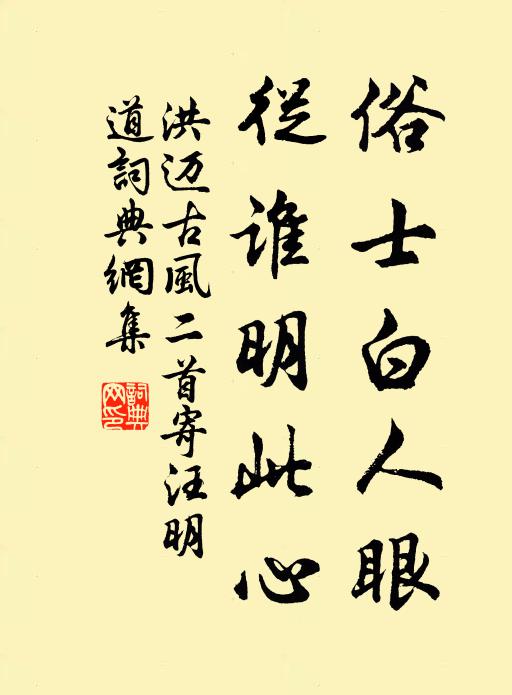 俗士白人眼
從誰明此心
洪迈古風二首寄汪明
道詞典網集
詞典
网印